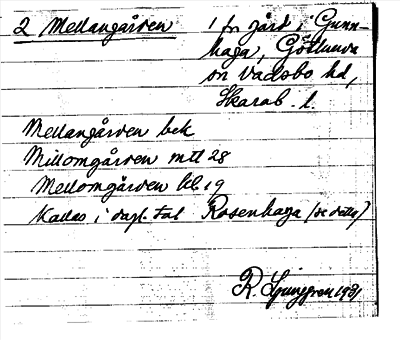 2 Mellangården 1 fr gård i Gunn-
haga, Götlunda
sn Vadsbo hd,
Skarab. l.
Mellangården bck
Millomgården mtl 28
Mellomgården kl. 19
Kallas i dagl. tal Rosenhaga (se detta)
R. Ljunggren 1931